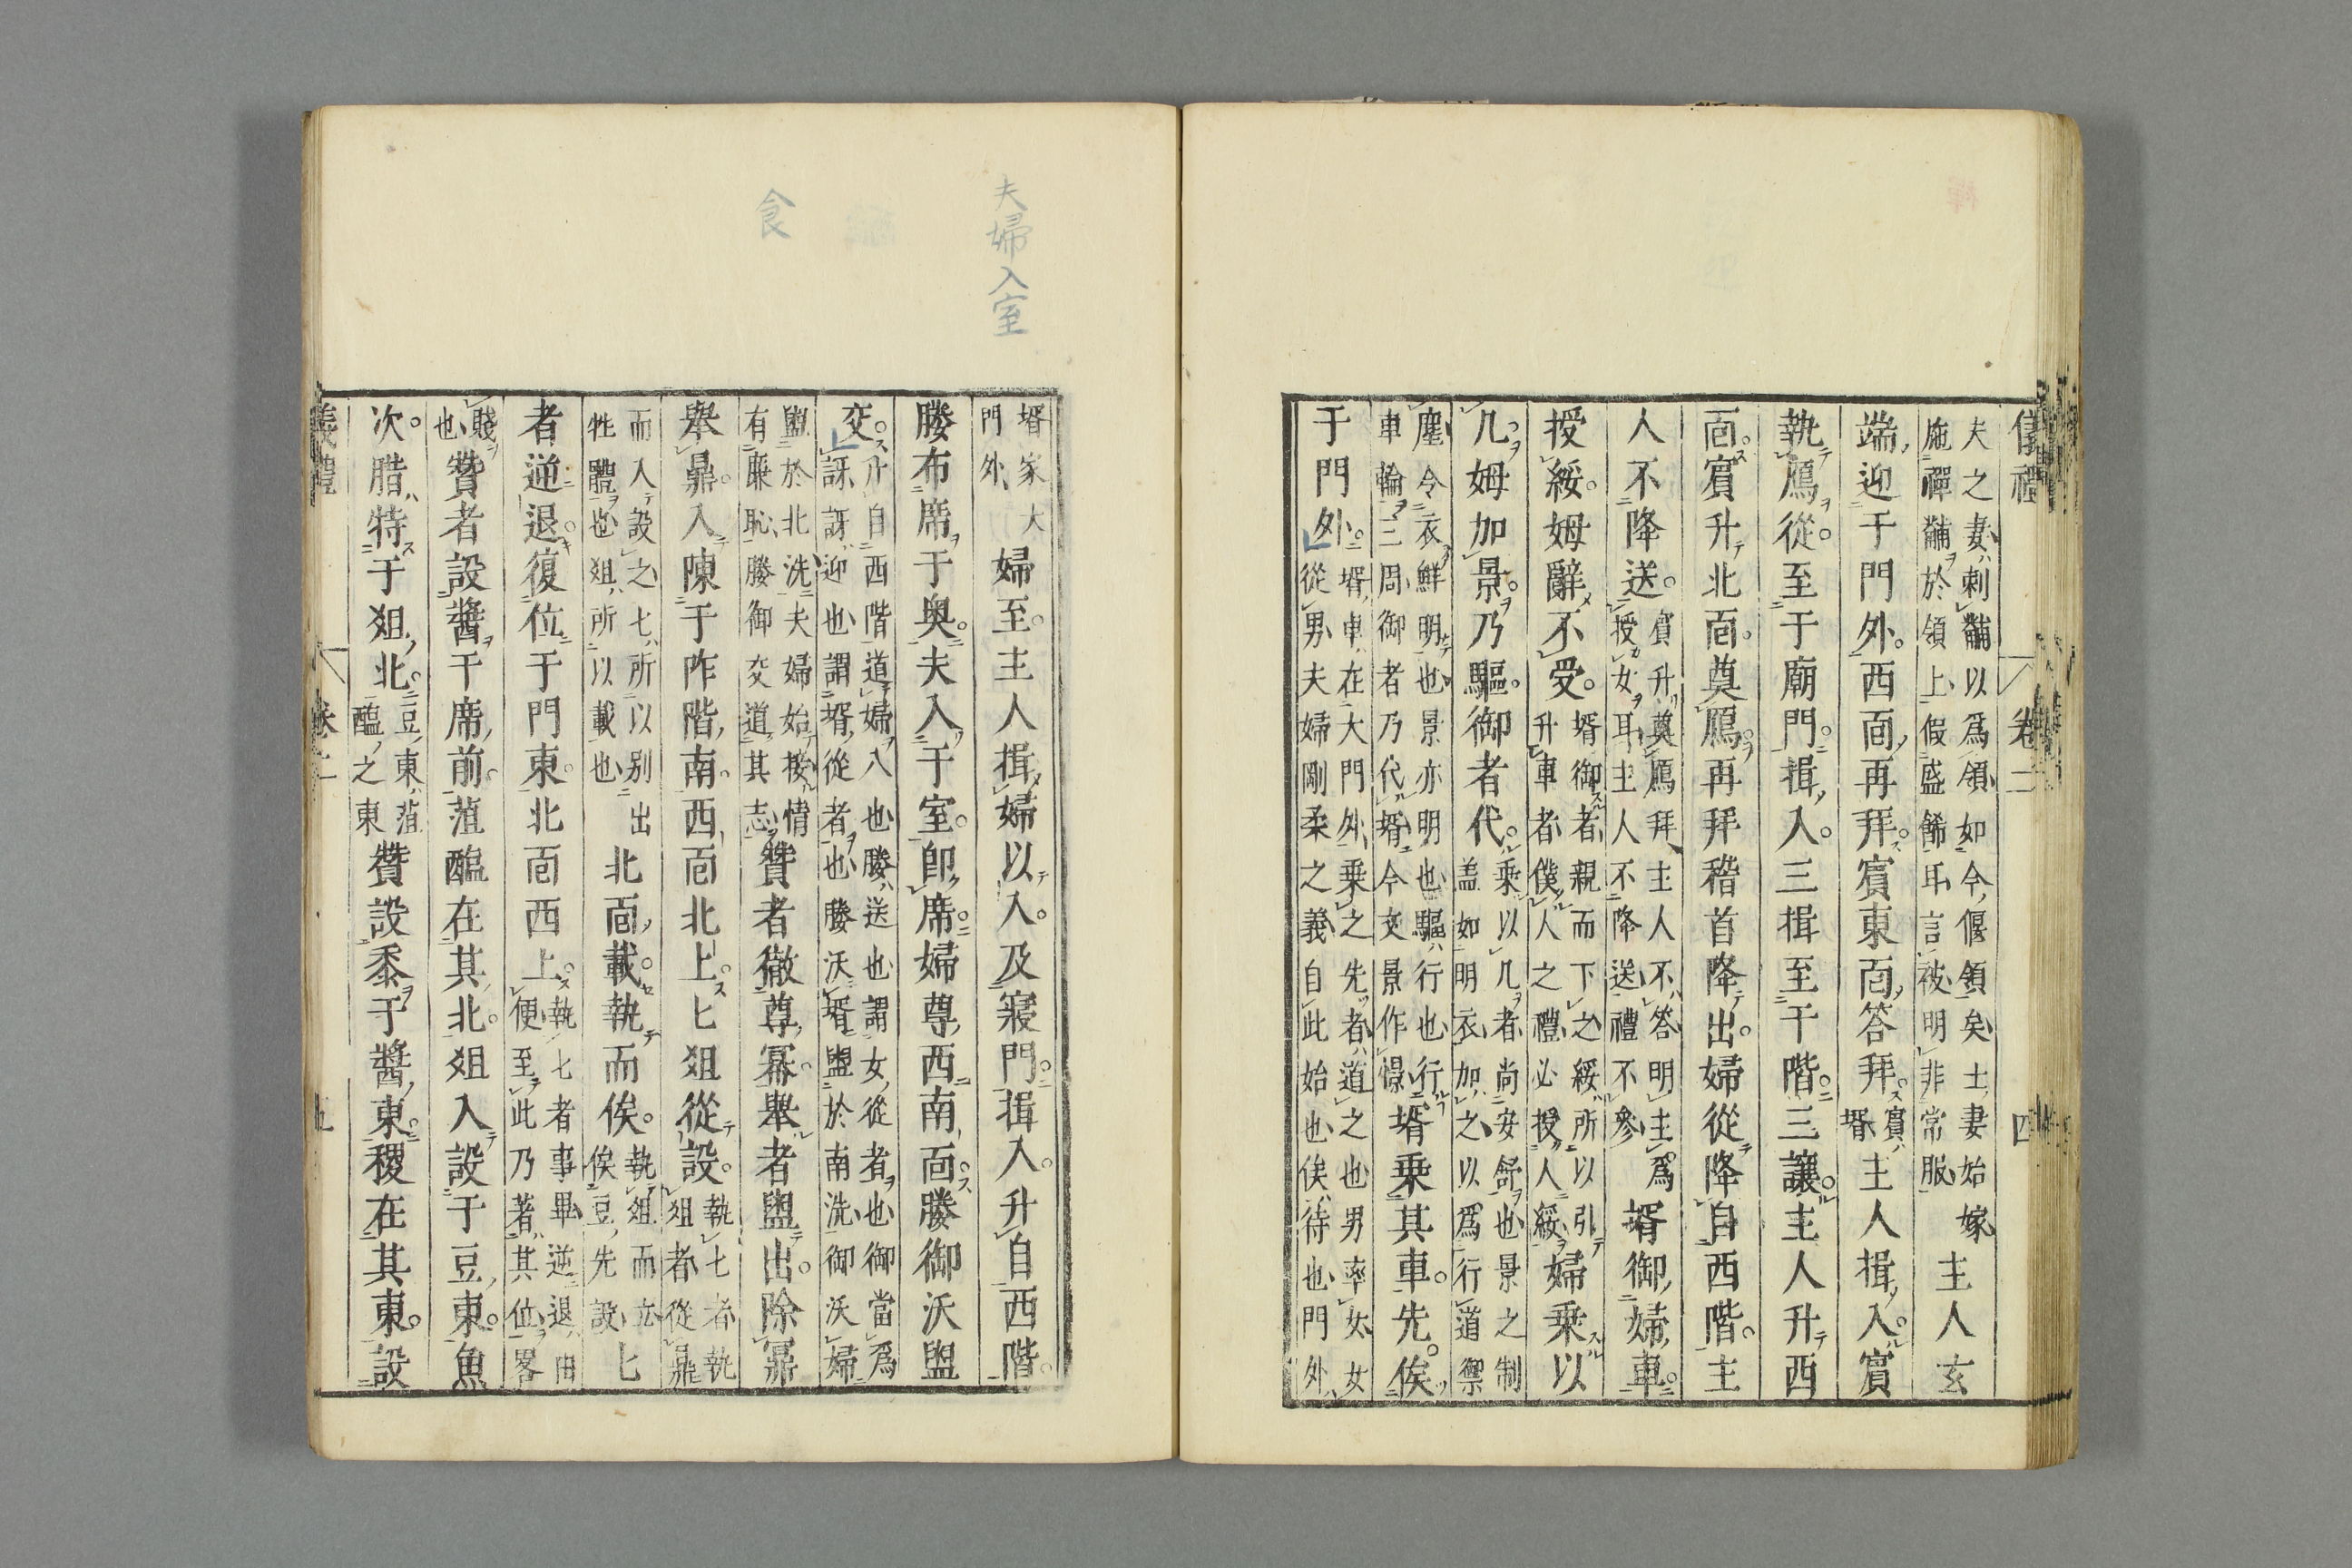 儀禮 卷二 四
夫之妻刺黼以爲領如今偃領矣士妻始嫁
施禪黼於領上假盛餙耳言被明非常服
主人玄
端迎于門外西面再拜賓東面答拜
賓
壻
主人揖入賓
執鴈從至于廟門揖入三揖至于階三讓主人升西
面賓升北面奠鴈再拜稽首降出婦從降自西階主
人不降送
賓升奠鴈拜主人不答明主爲
授女耳主人不降送禮不參
壻御婦車
授綏姆辭不受
壻御者親而下之綏所以引
升車者僕人之禮必授人綏
婦乗以
几姆加景乃驅御者代
乗以几者尚安舒也景之制
盖如明衣加之以爲行道禦
塵令衣鮮明也景亦明也驅行也行
車輪三周御者乃代壻今文景作憬
壻乗其車先俟
于門外
壻車在大門外乗之先者道之也男率女女
從男夫婦剛柔之義自此始也俟待也門外
夫婦入室
食
壻家大
門外
婦至主人揖婦以入及寢門揖入升自西階
媵布席于奥夫入于室即席婦尊西南面媵御沃盥
交
升自西階道婦入也媵送也謂女從者也御當爲
訝訝迎也謂壻從者也媵沃壻盥於南洗御沃婦
盥於北洗夫婦始接情
有廉恥媵御交道其志
贊者徹尊冪舉者盥出除鼏
舉鼎入陳于阼階南西面北上匕俎從設
執匕者執
俎者從鼎
而入設之匕所以别出
牲體也俎所以載也
北面載執而俟
執俎而立
俟豆先設
匕
者逆退復位于門東北面西上
執匕者事畢逆退由
便至此乃著其位畧
賤
也
贊者設醬于席前菹醢在其北俎入設于豆東魚
次腊特于俎北
豆東菹
醢之東
贊設黍于醬東稷在其東設
儀禮 卷二 五